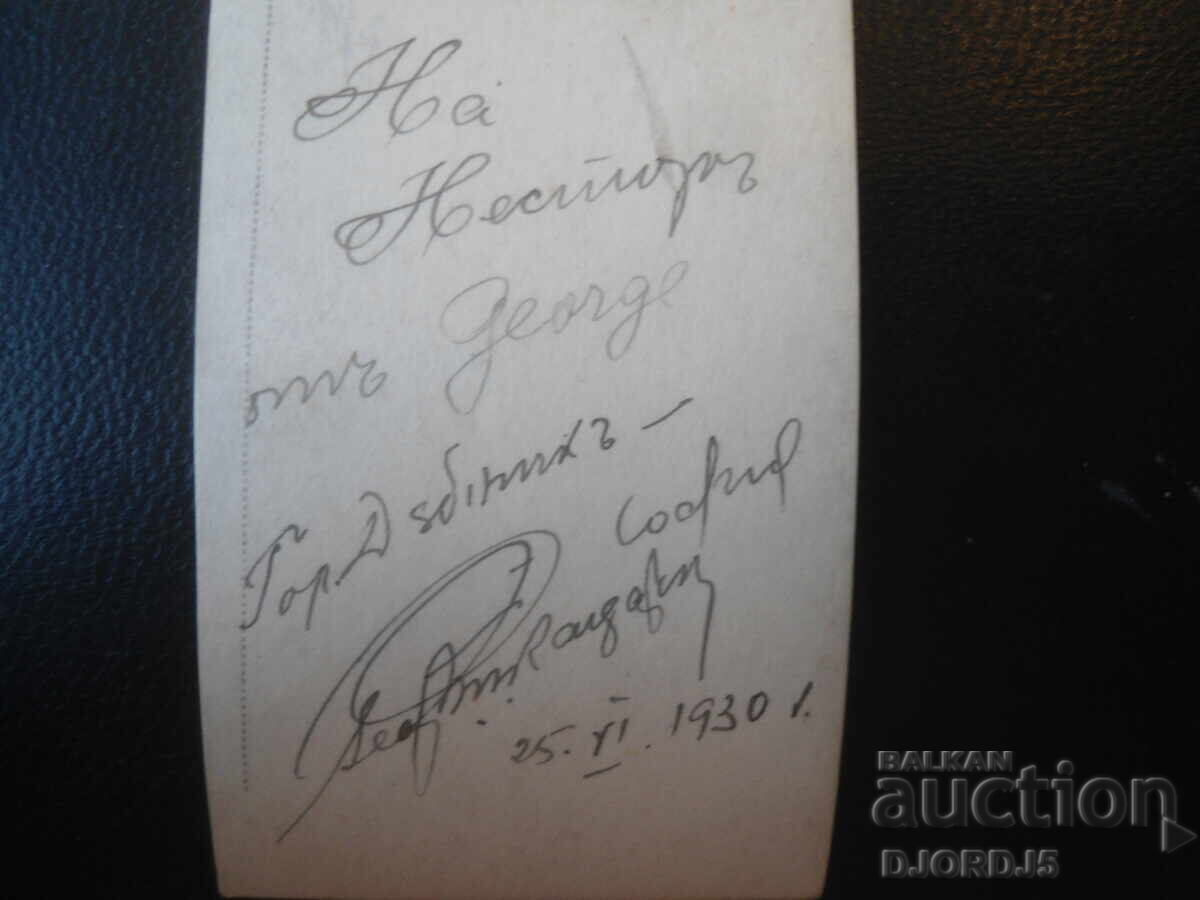 На
Несторъ
отъ George
Гор. Дѫбникъ –
София
25. XI. 1930 г.
BALKAN
auction
DJORDJ5